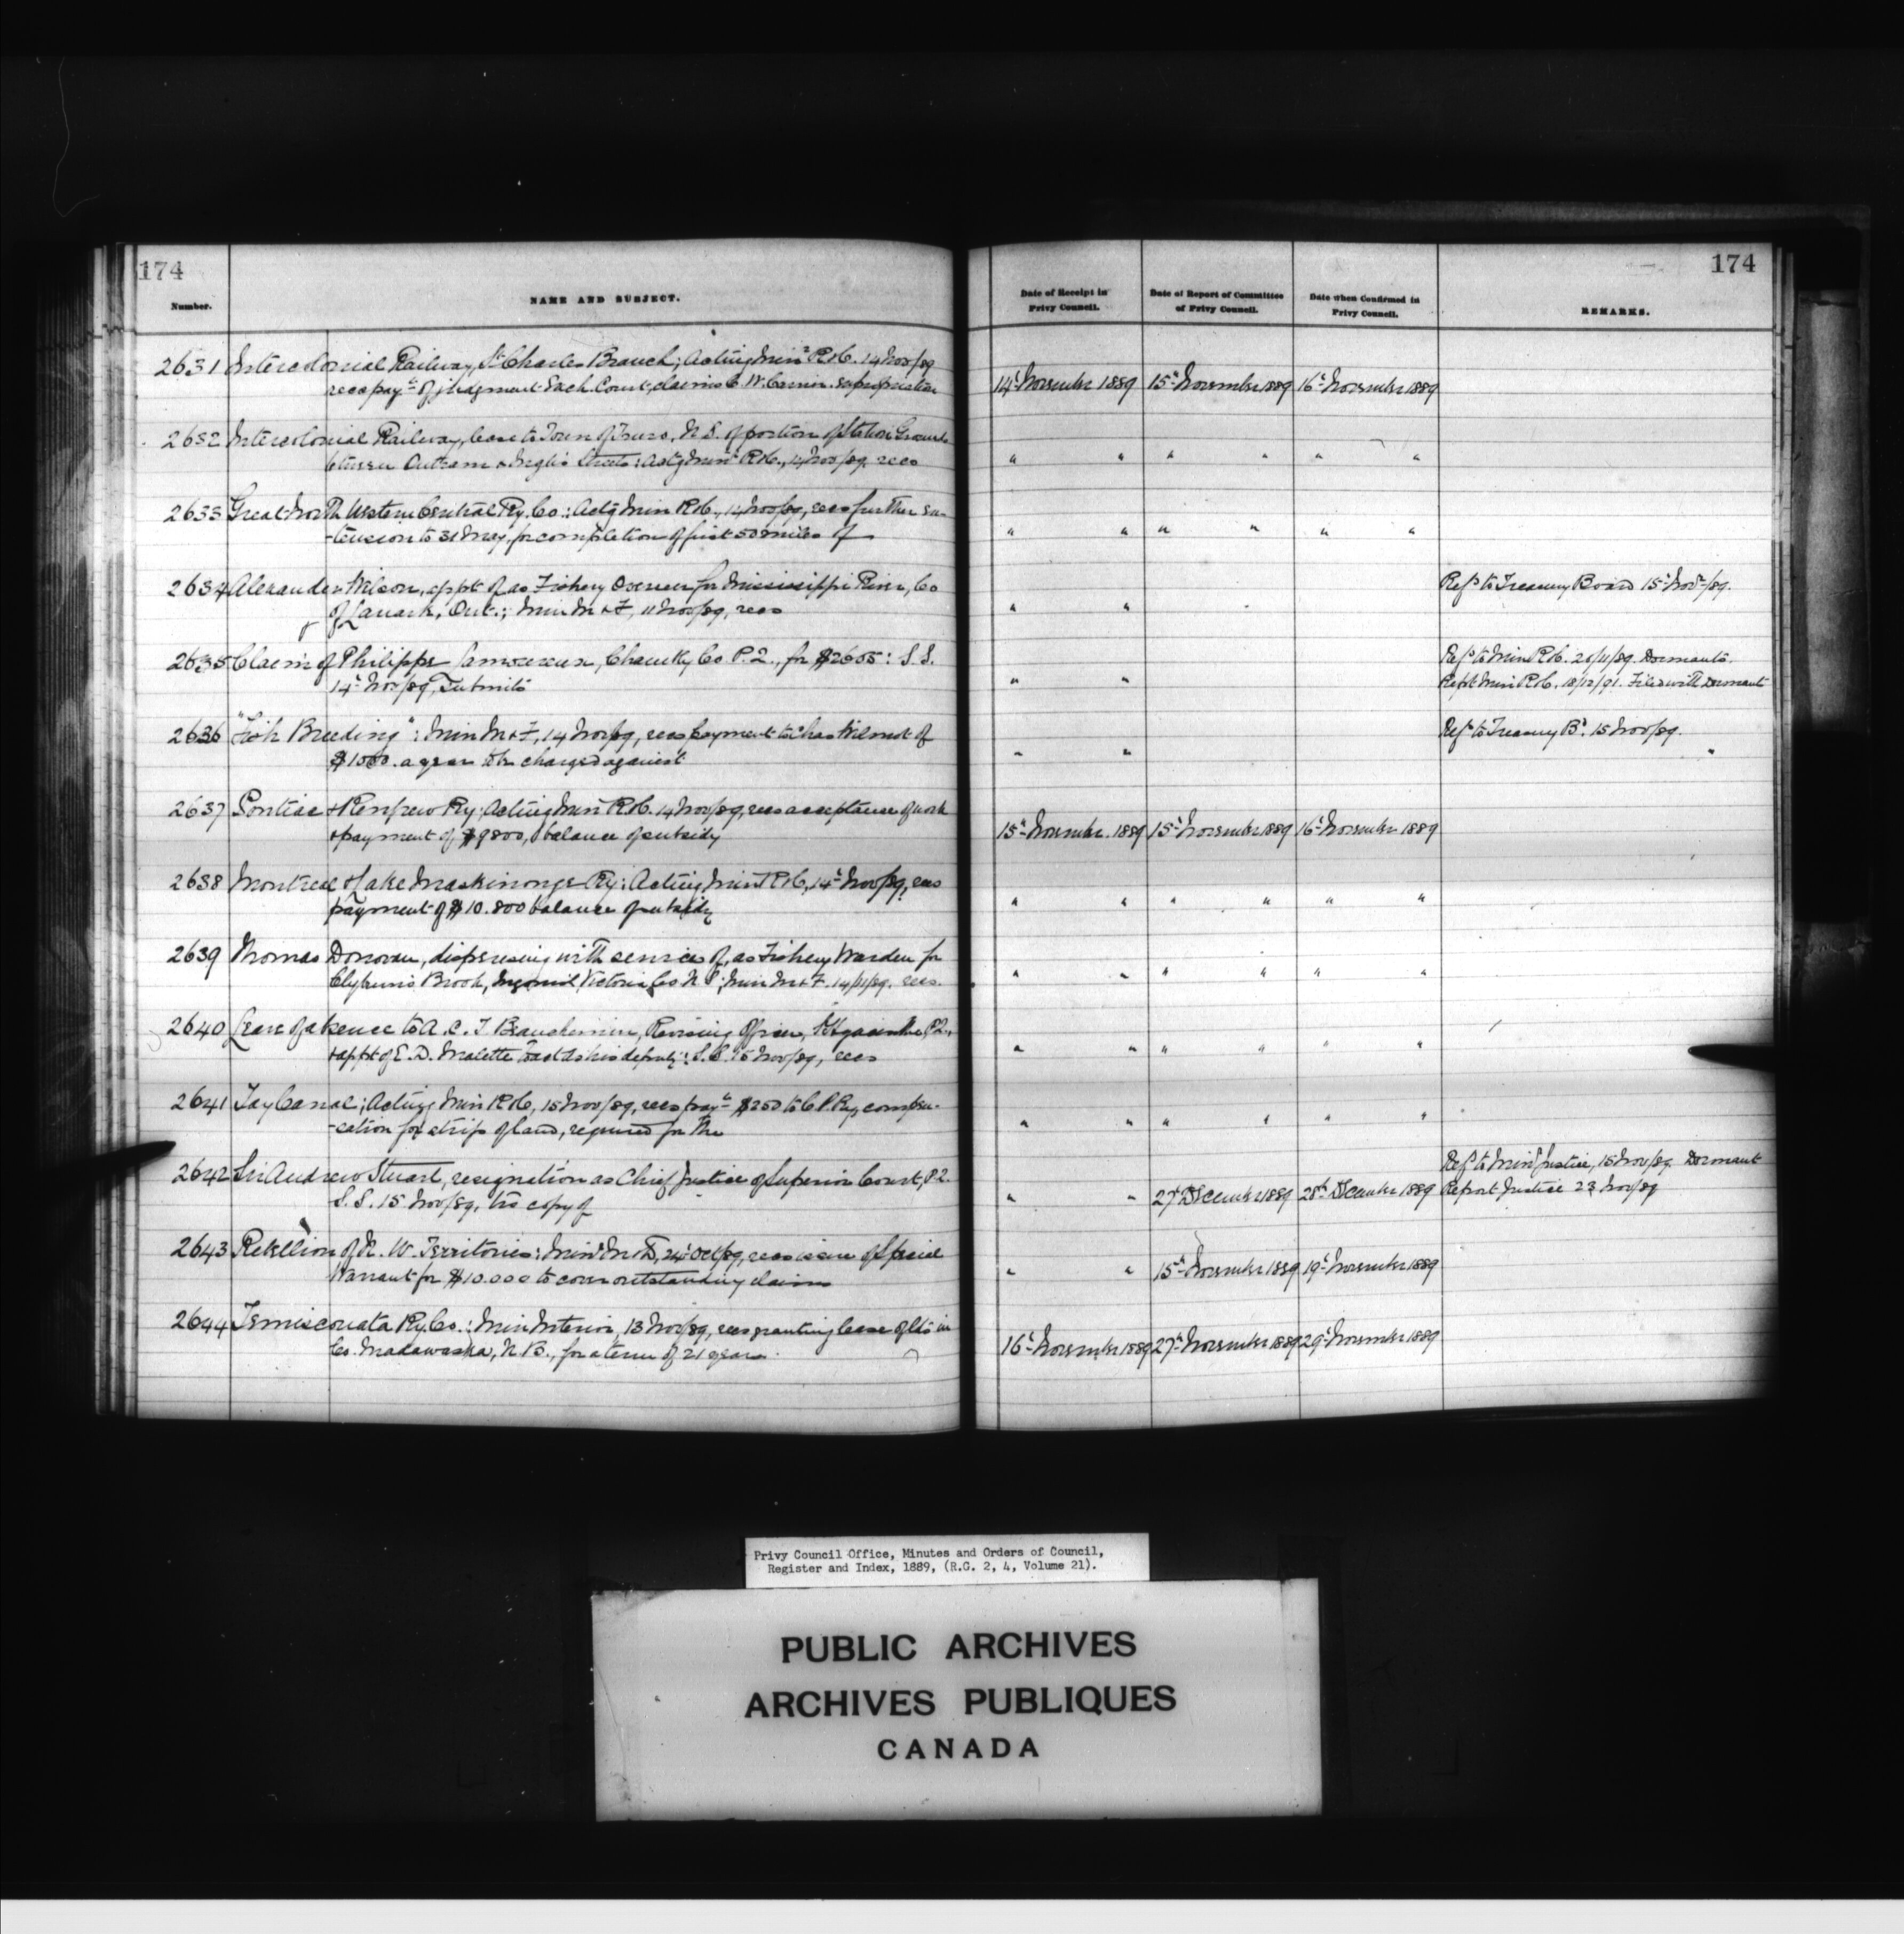 174
Number.
NAME AND SUBJECT.
2631 Intercolonial Railway, St Charles Branch; Acting Minr R&C. 14 Nov/89
recs payt of judgment Exch. Court, claim C. W. Carrier expropriation
2632 Intercolonial Railway, lease to Town of Truro, N.S. of portion of Station Grounds
between Outram & Inglis Streets: Actg Minr R&C., 14 Nov/89, recs
2633 Great North Western Central Ry. Co.: Actg Minr R&C., 14 Nov/89, recs further ex-
-tension to 31 May, for completion of first 50 miles of
2634 Alexander Wilson, appt. of as Fishery Overseer for Mississippi River, Co
of Lanark, Ont.; Min M & F, 11 Nov/89, recs
2635 Claim of Philippe Lamoureux, Chambly Co P.Q., for $2605: S.S.
14t Nov/89, Submits
2636 "Fish Breeding": Min M & F, 14 Nov/89, recs payment to Chas Wilmot of
$1000. a year to be charged against
2637 Pontiac & Renfrew Ry: Acting Minr R&C. 14 Nov/89, recs acceptance of work
& payment of $9800, balance of subsidy
2638 Montreal & Lake Maskinonge Ry: Acting Minr R&C, 14t Nov/89, recs
payment of $10.800 balance of subsidy
2639 Thomas Donovan, dispensing with services of, as Fishery Warden for
Clyburn's Brook, Ingonish, Victoria Co N.S; Min M & F. 14/11/89. recs.
2640 Leave of absence to A. C. T. Beauchemin, Revising Officer, St Hyacinthe, P.Q.,
& appt of E. D. Malette to act as his deputy: S.S. 15 Nov/89, recs
2641 Tay Canal; Acting Min R&C, 15 Nov/89, recs payt $250 to C.P.Ry, compen-
-sation for strip of land, required for the
2642 Sir Andrew Stuart, resignation as Chief Justice of Superior Court, P.Q.
S.S. 15 Nov/89, trs copy of
2643 Rebellion of N. W. Territories: Minr M & D, 24t Oct/89, recs issue of Special
Warrant for $10.000 to cover outstanding claims
2644 Temiscouata Ry. Co.: Min Interior, 13 Nov/89, recs granting lease of lots in
Co. Madawaska, N.B., for a term of 21 years.
174
Date of Receipt in
Privy Council.
Date of Report of Committee
of Privy Council.
Date when Confirmed in
Privy Council.
REMARKS.
14t November 1889 15t November 1889 16t November 1889
" " " " " "
" " " " " "
Refd to Treasury Board 15t Novr/89.
" "
Refd to Min R&C. 20/11/89. Dormants.
" " Rept Min R&C. 18/12/91. Filed with Dormants
Refd to Treasury Bd. 15 Nov/89.
" " "
15t November. 1889 15t November 1889 16t November 1889
" " " " " "
" " " " " "
" " " " " "
" " " " " "
Refd to Minr Justice, 15 Nov/89. Dormant
" " 27t December 1889 28t December 1889 Report Justice 23 Nov/89
" " 15t November 1889 19t November 1889
16t November 1889 27t November 1889 29t November 1889
Privy Council Office, Minutes and Orders of Council,
Register and Index, 1889, (R.G. 2, 4, Volume 21).
PUBLIC ARCHIVES
ARCHIVES PUBLIQUES
CANADA